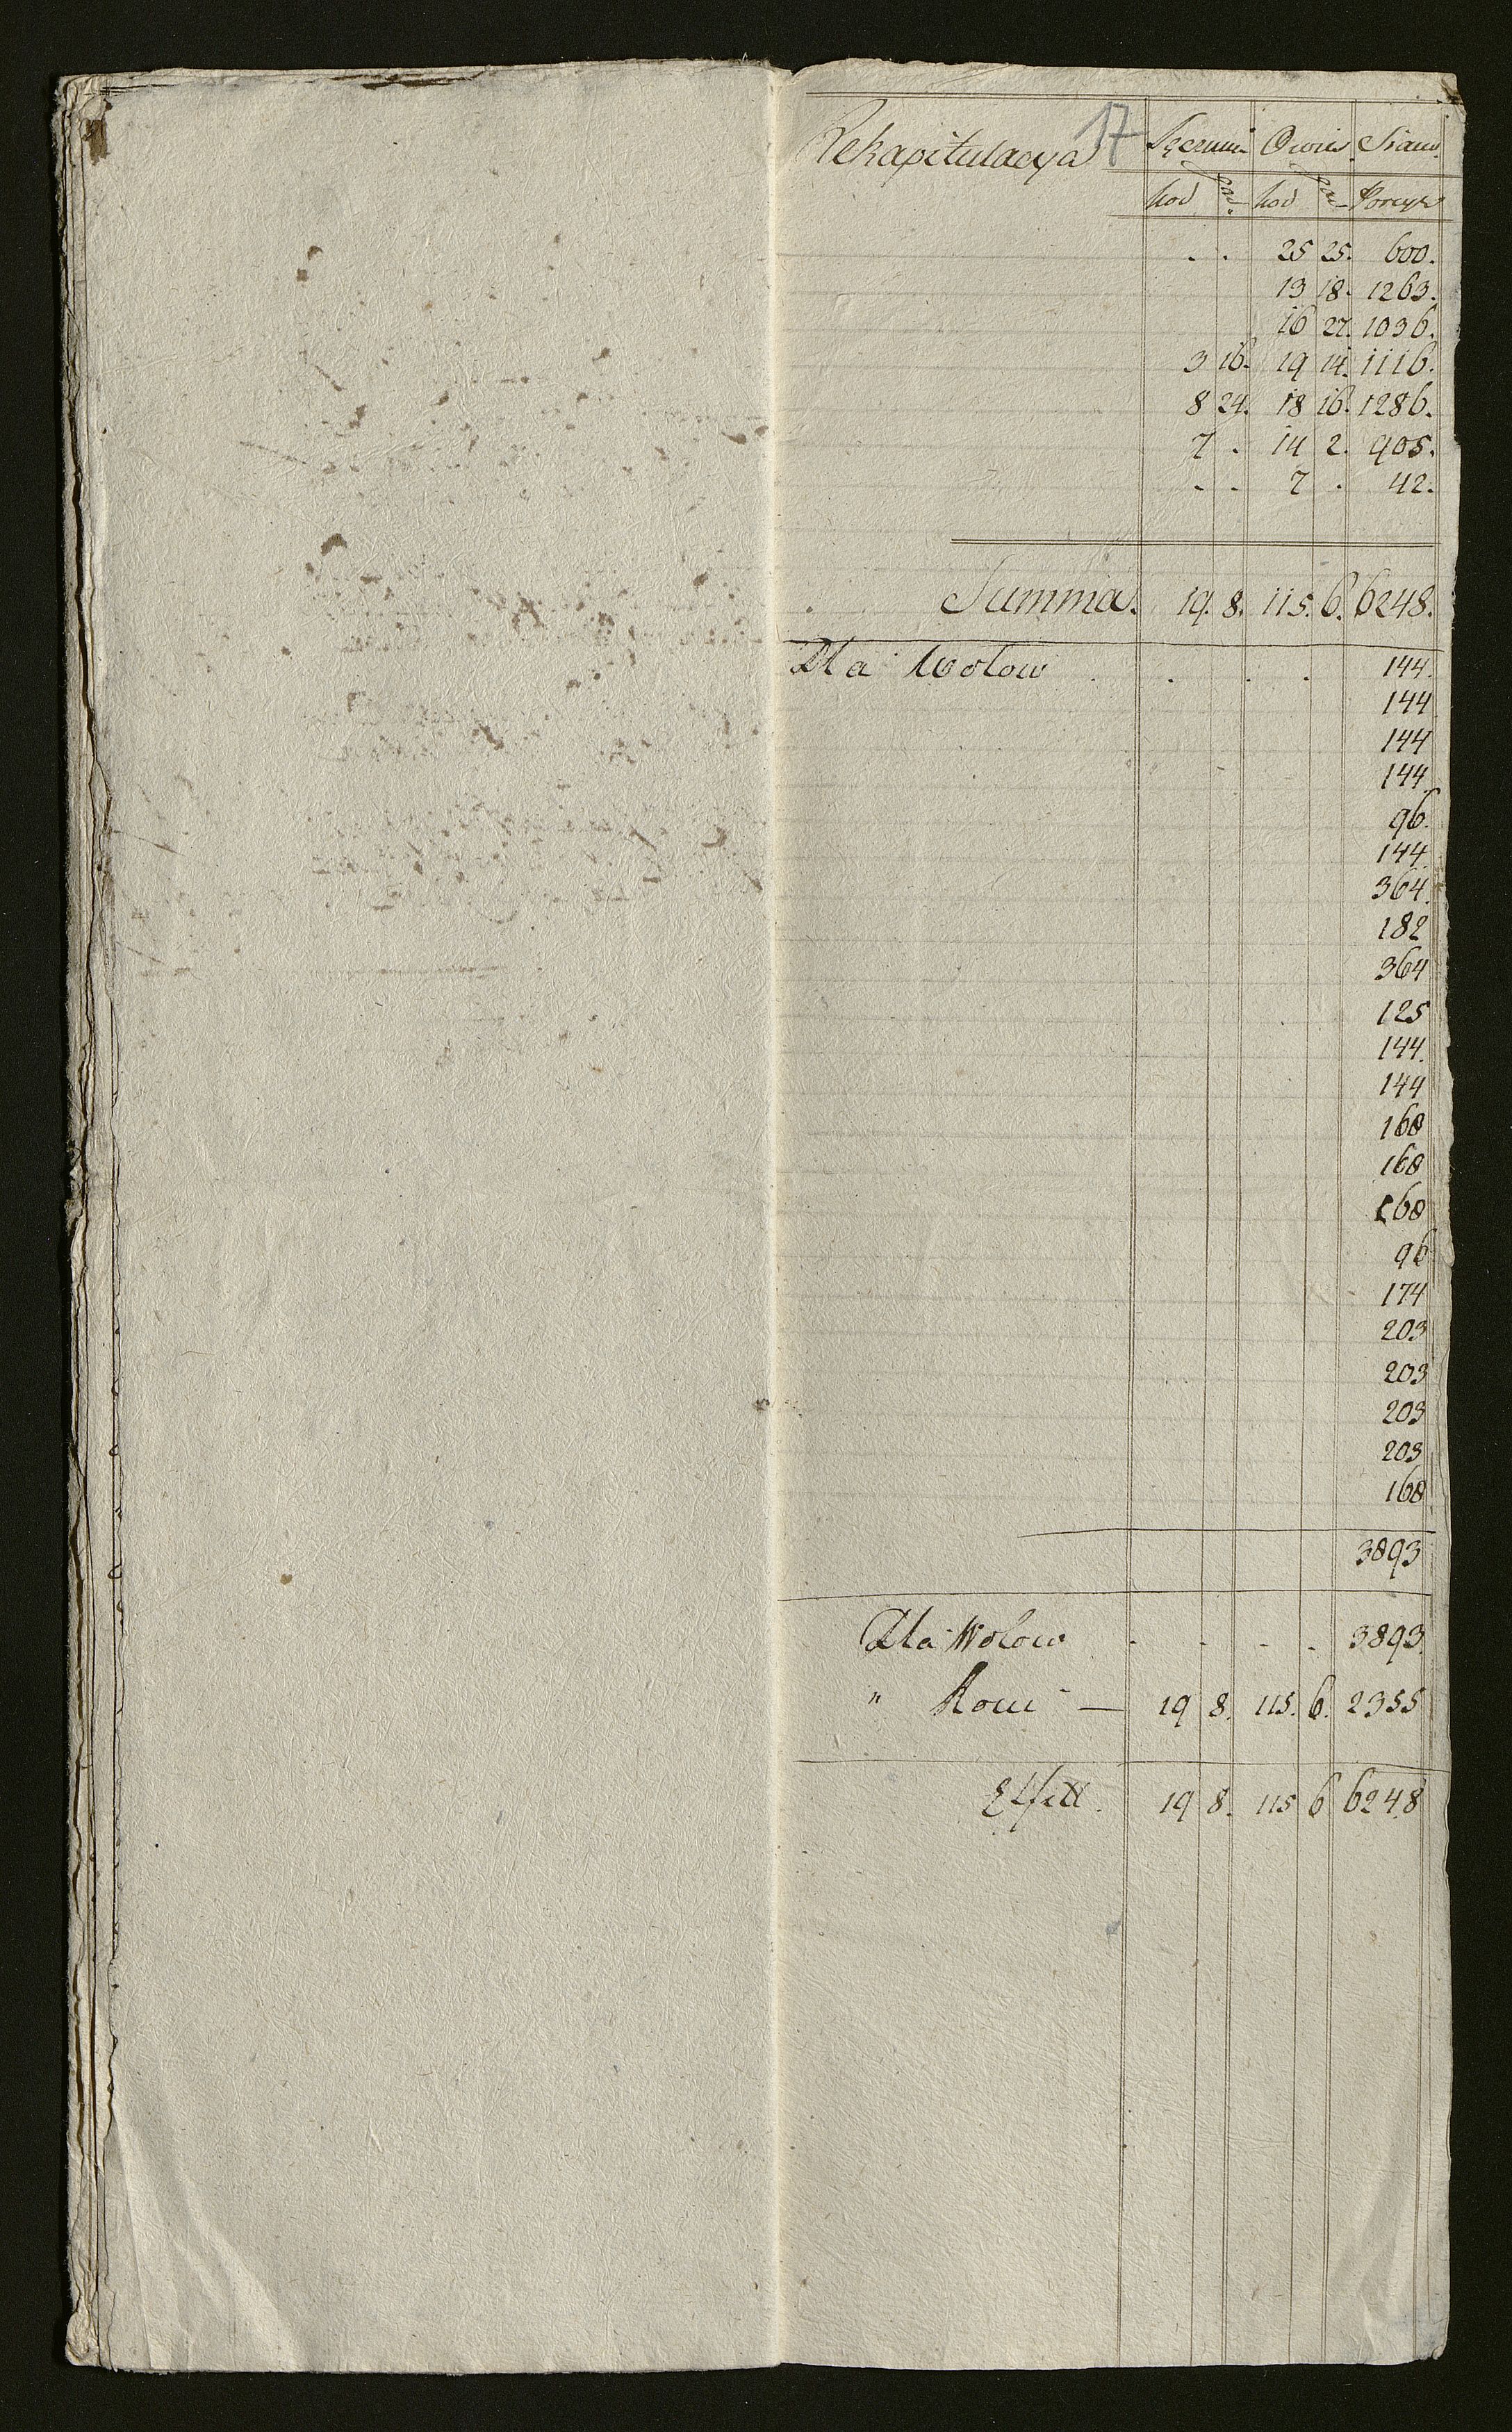 17
Rekapitulacya Jęczmie Owies Siano
kor gar kor gar Porcye
. . 25 25. 600.
13 18. 1263.
16 27. 1036.
3 16. 19 14. 1116.
8 24. 18 16. 1286.
7 . 14 2. 905.
- - 7 . 42.
Summa. 19. 8. 115. 6. 6248.
Dla Wołow . . . . 144.
144
144
144.
96.
144.
364.
182
364
125
144.
144
168
168
168
96
174
203
203
203
203
168
3893
Dla Wołow . - - . 3893.
" Koni — 19 8. 115. 6. 2355
19 8. 115 6 6248